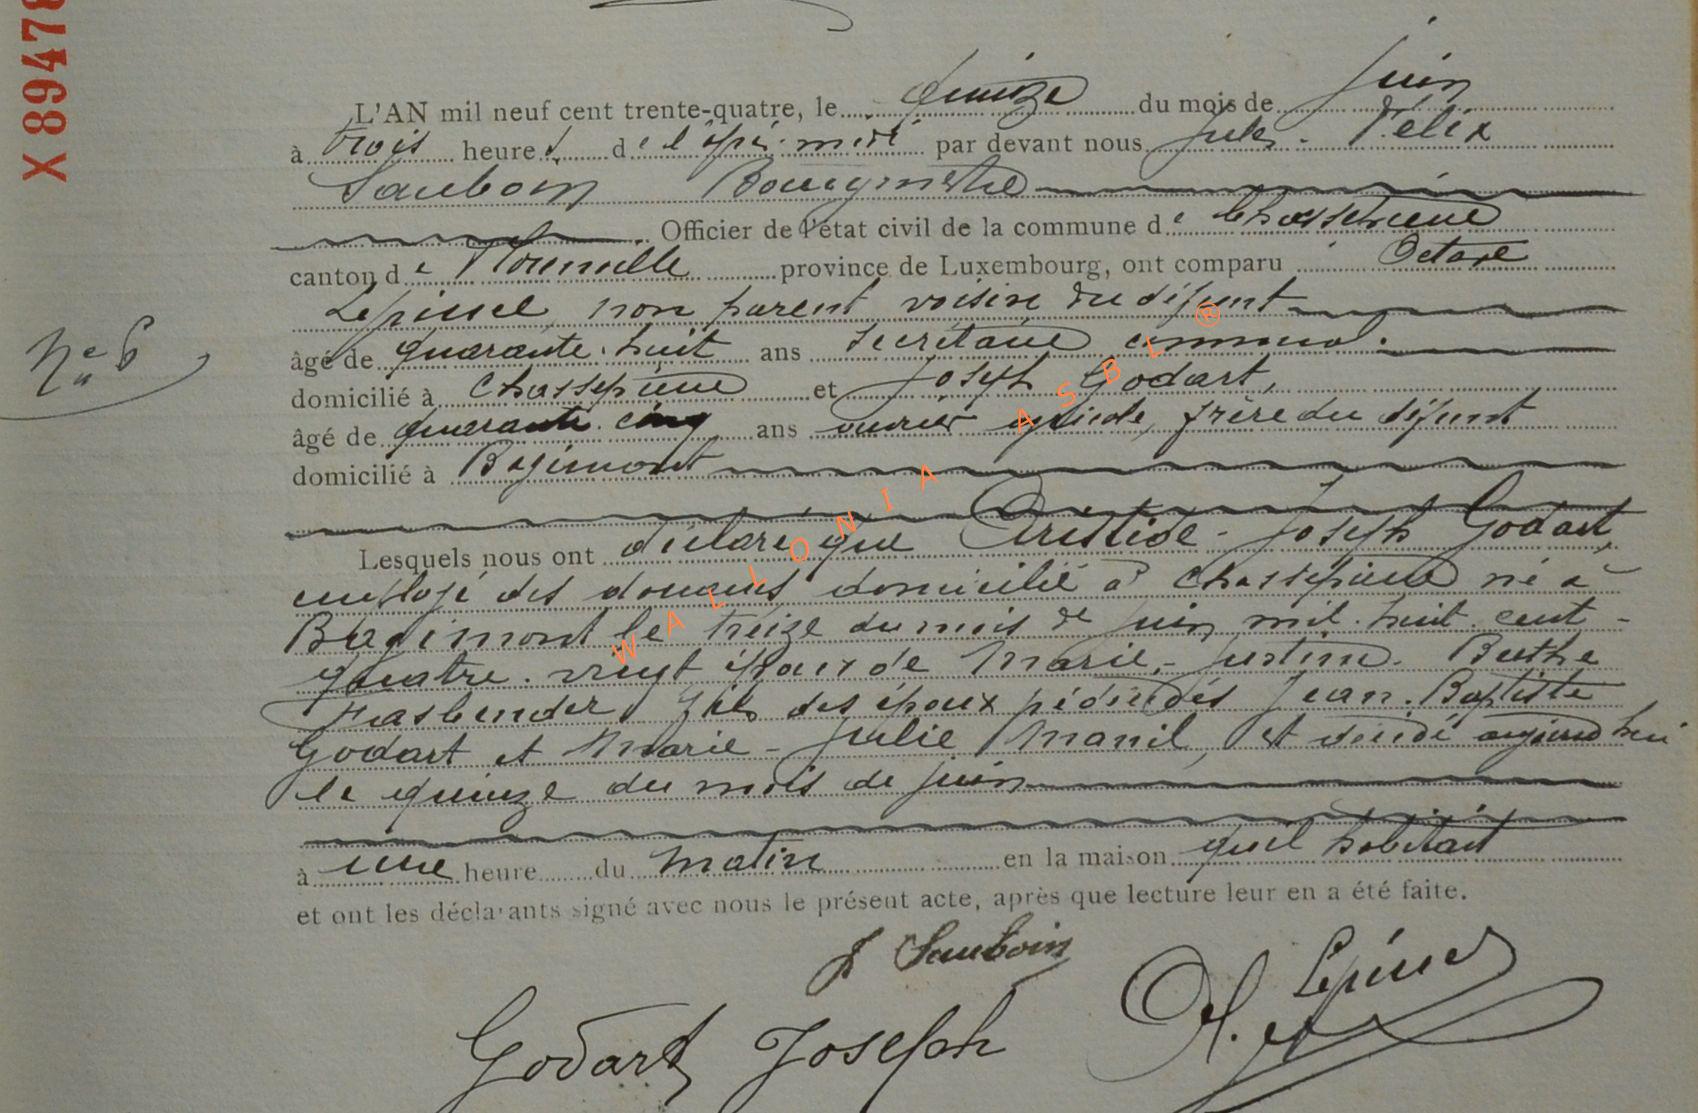 X 89478
L'AN mil neuf cent trente-quatre, le quinze du mois de juin
à trois heures de l'après-midi par devant nous Jules-Félix
Sauboin Bourgmestre
Officier de l'état civil de la commune de Chassepierre
canton de Florenville province de Luxembourg, ont comparu Octave
non parent voisin du défunt
N° 6
âgé de quarante-huit ans secrétaire communal.
domicilié à Chassepierre et Joseph Godart,
âgé de quarante cinq ans ouvrier agricole, frère du défunt
domicilié à Bagimont
Lesquels nous ont déclaré que Aristide-Joseph Godart,
employé des douanes domicilié à Chassepierre né à
Bagimont le treize du mois de juin mil-huit-cent-
quatre-vingt époux de Marie-Justine-Berthe
Fasbender fils des époux prédécédés Jean-Baptiste
Godart et Marie-Julie Manil, et décédé aujourd'hui
le quinze du mois de juin
à une heure du matin en la maison qu'il habitait
et ont les déclarants signé avec nous le présent acte, après que lecture leur en a été faite.
J Sauboin
Godart Joseph
WALLONIA ASBL ®